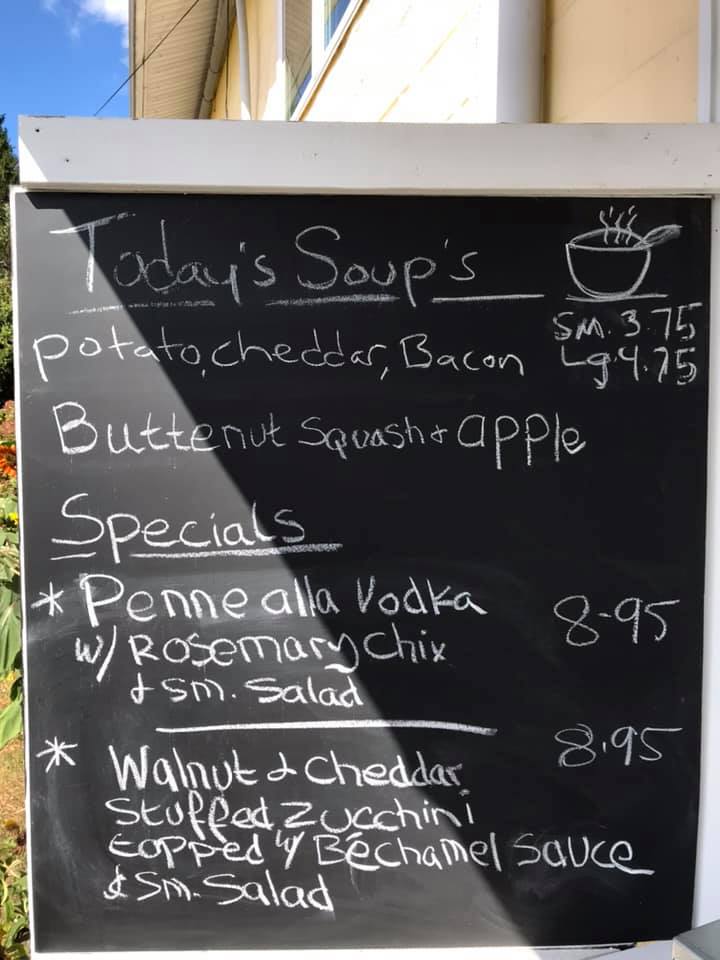 Today's Soup's
Sm. 3.75
potato, cheddar, Bacon
Lg 4.75
Buttenut Squash & apple
Specials
* Penne alla Vodka
8-95
w/ Rosemary Chix
& sm. Salad
* Walnut & cheddar
8.95
Stuffed Zucchini
topped w/ Béchamel Sauce
& Sm. Salad